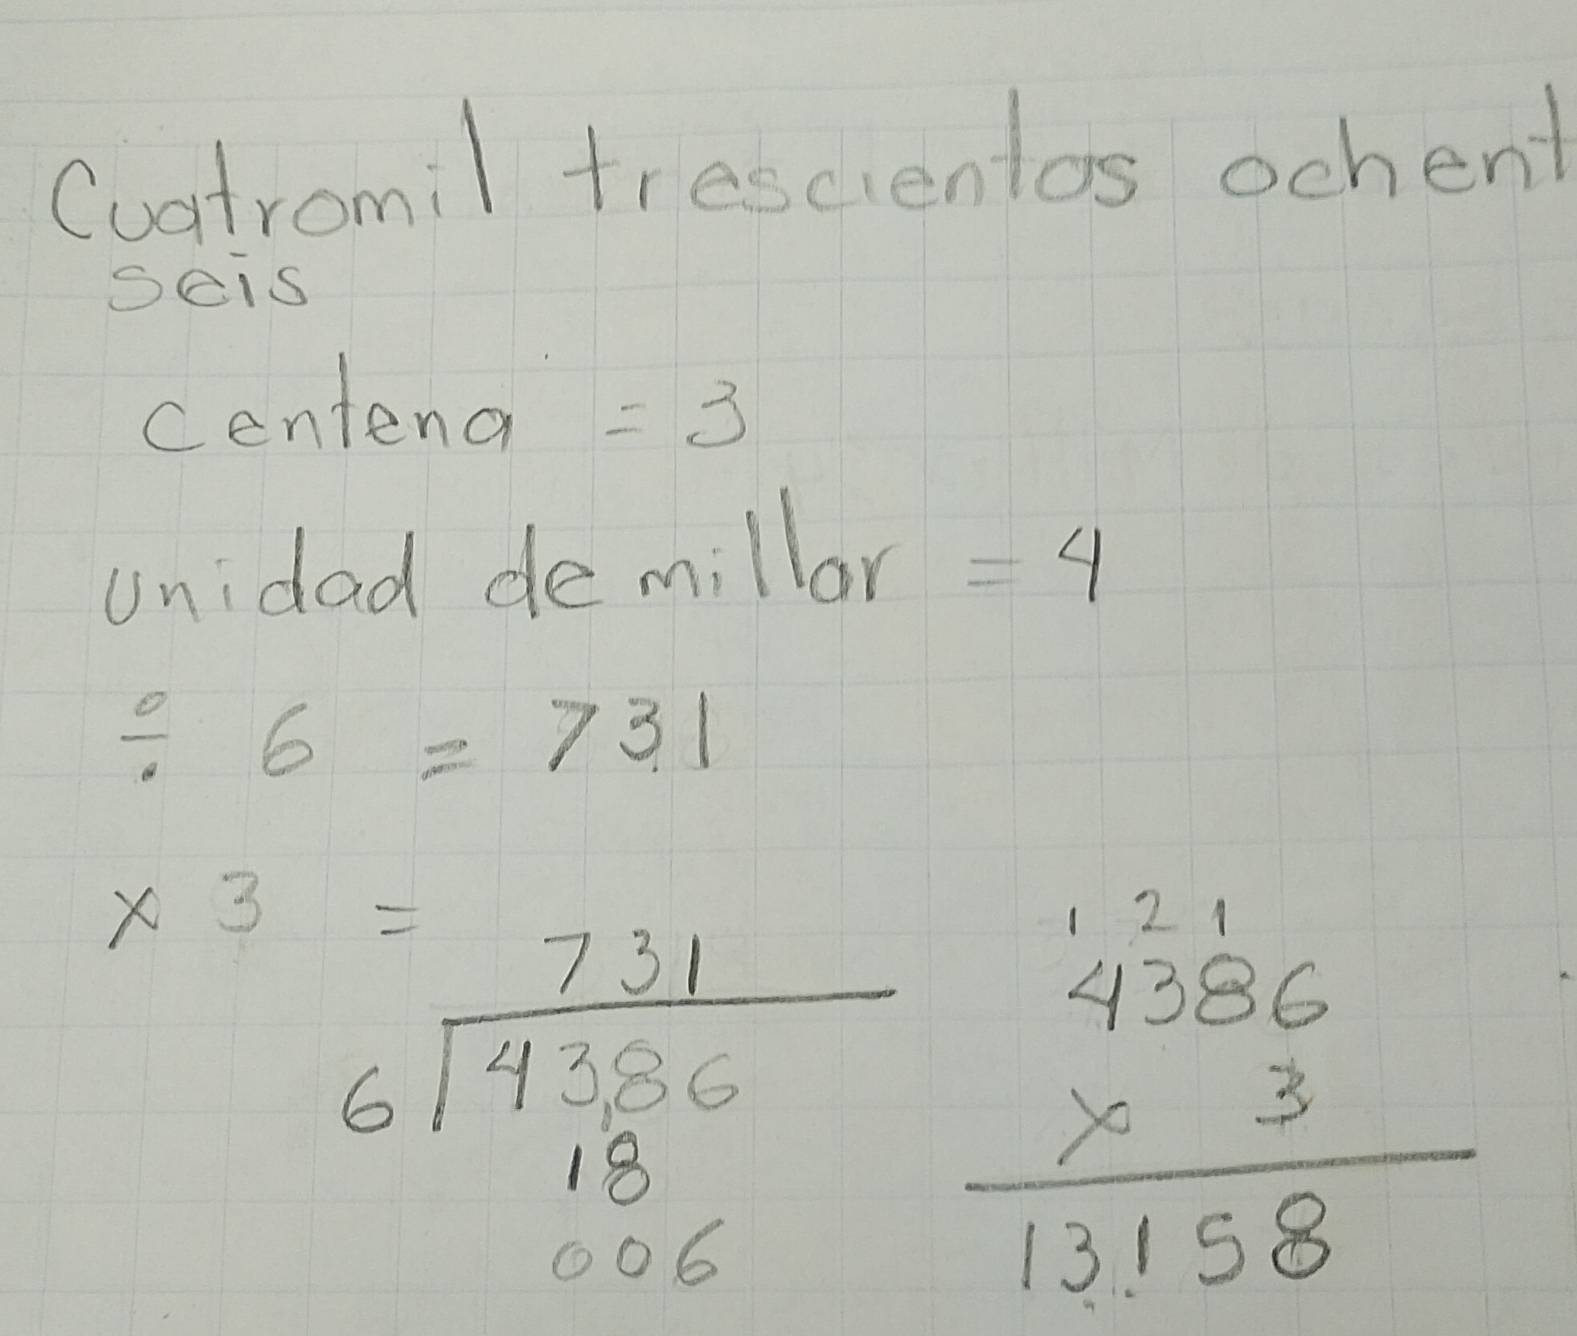 Cuatromil trescientos ochent
seis
centena = 3
unidad de millar = 4
÷ 6 = 731
x 3 =
731
6 4386
18
006
1 2 1
4386
x 3
13158